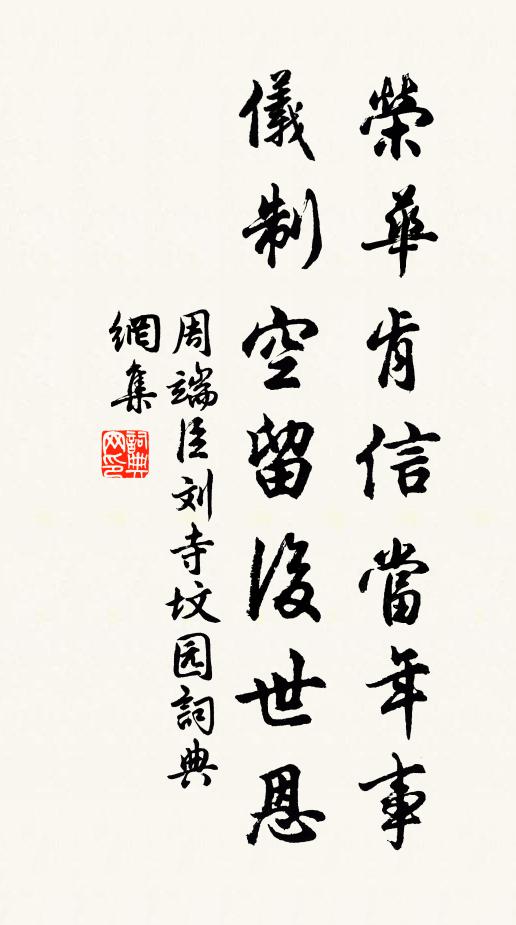 榮華肯信當年事
儀制空留後世恩
周端臣刘寺坟园詞典
網集
詞典
网印